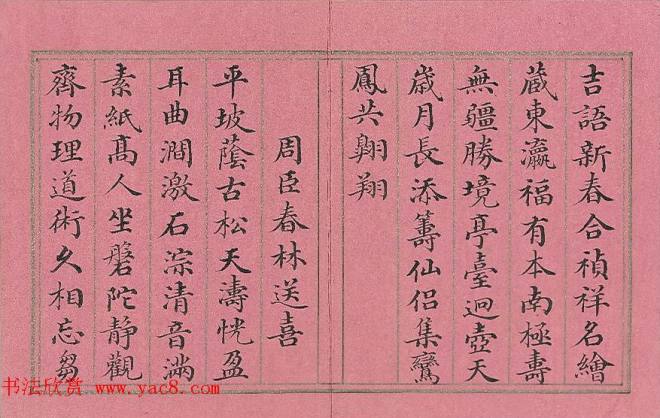 吉語新春合禎祥名繪
蔵東瀛福有本南極壽
無疆勝境亭臺迥壺天
歲月長添籌仙侶集鸞
鳳共翺翔
周臣春林送喜
平坡蔭古松天濤恍盈
耳曲澗激石淙清音滿
素紙髙人坐磐陀靜觀
齊物理道術久相忘芻
书法欣赏 www.yac8.com